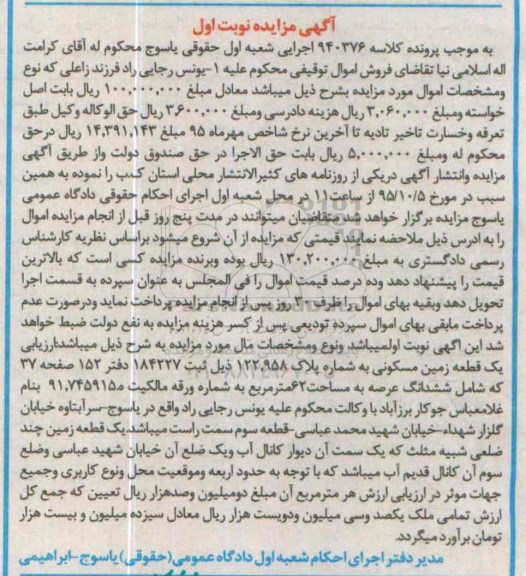 آگهی مزایده نوبت اول
به موجب پرونده کلاسه ۹۴۰۳۷۶ اجرایی شعبه اول حقوقی یاسوج محکوم له آقای کرامت
اله اسلامی نیا تقاضای فروش اموال توقیفی محکوم علیه ۱-یونس رجایی راد فرزند زاعلی که نوع
ومشخصات اموال مورد مزایده بشرح ذیل میباشد معادل مبلغ ۱۰۰,۰۰۰,۰۰۰ ریال بابت اصل
خواسته ومبلغ ۳,۰۶۰,۰۰۰ ریال هزینه دادرسی ومبلغ ۳,۶۰۰,۰۰۰ ریال حق الوکاله وکیل طبق
تعرفه وخسارت تاخیر تادیه تا آخرین نرخ شاخص مهرماه ۹۵ مبلغ ۱۴,۳۹۱,۱۴۳ ریال درحق
محکوم له ومبلغ ۵,۰۰۰,۰۰۰ ریال بابت حق الاجرا در حق صندوق دولت واز طریق آگهی
مزایده وانتشار آگهی دریکی از روزنامه های کثیرالانتشار محلی استان کسب را نموده به همین
سبب در مورخ ۹۵/۱۰/۵ از ساعت۱۱ در محل شعبه اول اجرای احکام حقوقی دادگاه عمومی
یاسوج مزایده برگزار خواهد شد متقاضیان میتوانند در مدت پنج روز قبل از انجام مزایده اموال
را به ادرس ذیل ملاحضه نمایند قیمتی که مزایده از آن شروع میشود براساس نظریه کارشناس
رسمی دادگستری به مبلغ ۱۳۰,۲۰۰,۰۰۰ ریال بوده وبرنده مزایده کسی است که بالاترین
قیمت را پیشنهاد دهد وده درصد قیمت اموال را فی المجلس به عنوان سپرده به قسمت اجرا
تحویل دهد وبقیه بهای اموال را ظرف ۳۰ روز پس از انجام مزایده پرداخت نماید ودرصورت عدم
پرداخت مابقی بهای اموال سپرده تودیعی پس از کسر هزینه مزایده به نفع دولت ضبط خواهد
شد این آگهی نوبت اولمیباشد ونوع ومشخصات مال مورد مزایده به شرح ذیل میباشد:ارزیابی
یک قطعه زمین مسکونی به شماره پلاک ۱۲۲,۹۵۸ ذیل ثبت ۱۸۴۲۲۷ دفتر ۱۵۲ صفحه ۳۷
که شامل ششدانگ عرصه به مساحت۶۲مترمربع به شماره ورقه مالکیت ۹۱,۷۴۵۹۱۵.ه بنام
غلامعباس جوکار برزآباد با وکالت محکوم علیه یونس رجایی راد واقع در یاسوج-سرآبتاوه خیابان
گلزار شهداء-خیابان شهید محمد عباسی-قطعه سوم سمت راست میباشد.یک قطعه زمین چند
ضلعی شبیه مثلث که یک سمت آن دیوار کانال آب ویک ضلع آن خیابان شهید عباسی وضلع
سوم آن کانال قدیم آب میباشد که با توجه به حدود اربعه وموقعیت محل ونوع کاربری وجمیع
جهات موثر در ارزیابی ارزش هر مترمربع آن مبلغ دومیلیون وصدهزار ریال تعیین که جمع کل
ارزش تمامی ملک یکصد وسی میلیون ودویست هزار ریال معادل سیزده میلیون و بیست هزار
تومان برآورد میگردد.
مدیر دفتر اجرای احکام شعبه اول دادگاه عمومی(حقوقی) یاسوج-ابراهیمی